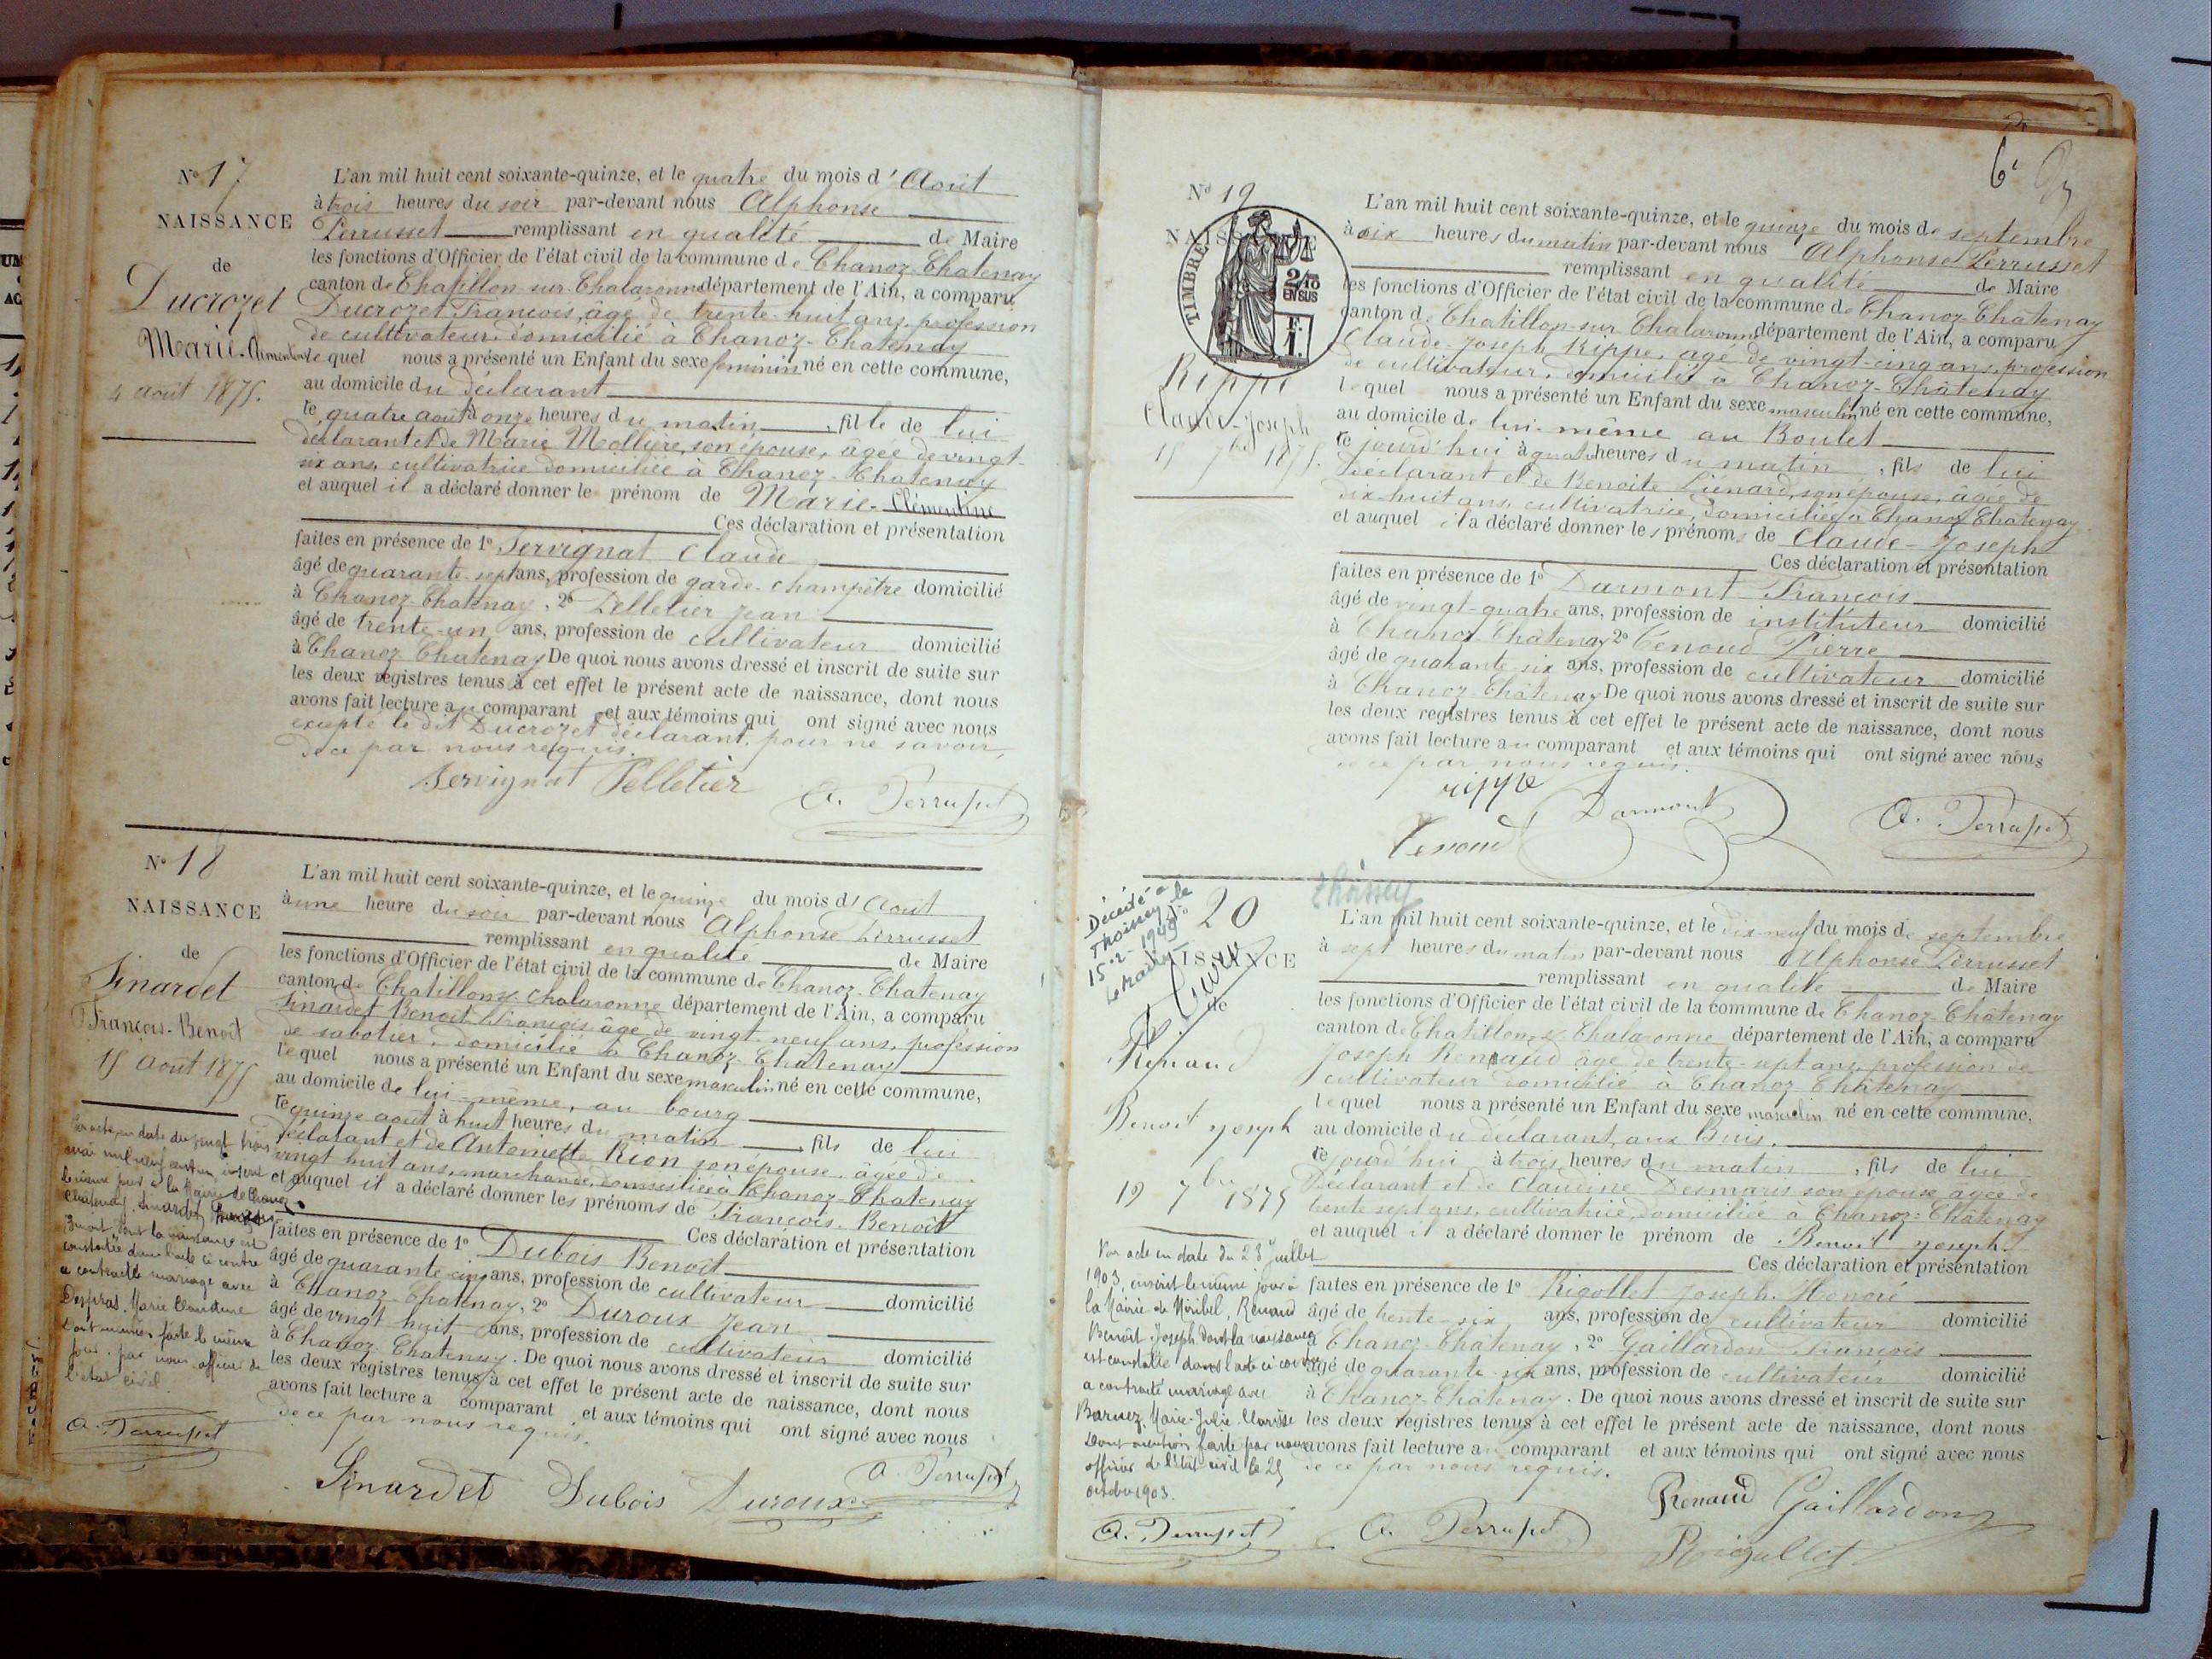 N° 17
NAISSANCE
de
Ducrozet
Marie-Clémentine
4 août 1875.
L'an mil huit cent soixante-quinze, et le quatre du mois d'Août
à trois heures du soir par-devant nous Alphonse
Perrusset remplissant en qualité de Maire
les fonctions d'Officier de l'état civil de la commune de Chanoz-Chatenay
canton de Chatillon-sur-Chalaronne département de l'Ain, a comparu
Ducrozet François, âgé de trente-huit ans, profession
de cultivateur, domicilié à Chanoz-Chatenay
lequel nous a présenté un Enfant du sexe féminin né en cette commune,
au domicile du déclarant
le quatre août à onze heures du matin, fille de lui
déclarant et de Marie Mollière, son épouse, âgée de vingt-
six ans, cultivatrice domiciliée à Chanoz-Chatenay
et auquel il a déclaré donner le prénom de Marie-Clémentine
Ces déclaration et présentation
faites en présence de 1° Servignat Claude
âgé de quarante-sept ans, profession de garde-champêtre domicilié
à Chanoz-Chatenay, 2° Pelletier Jean
âgé de trente-un ans, profession de cultivateur domicilié
à Chanoz Chatenay De quoi nous avons dressé et inscrit de suite sur
les deux registres tenus à cet effet le présent acte de naissance, dont nous
avons fait lecture au comparant et aux témoins qui ont signé avec nous
excepté le dit Ducrozet déclarant, pour ne savoir,
de ce par nous requis.
Servignat Pelletier A. Perrusset
N° 18
NAISSANCE
de
Sinardet
François-Benoît
15 Août 1875
L'an mil huit cent soixante-quinze, et le quinze du mois d'Août
à une heure du soir par-devant nous Alphonse Perrusset
remplissant en qualité de Maire
les fonctions d'Officier de l'état civil de la commune de Chanoz-Chatenay
canton de Chatillon s/ Chalaronne département de l'Ain, a comparu
Sinardet Benoit François âgé de vingt-neuf ans, profession
de sabotier, domicilié à Chanoz-Chatenay
lequel nous a présenté un Enfant du sexe masculin né en cette commune,
au domicile de lui-même, au bourg
le quinze août à huit heures du matin, fils de lui
déclarant et de Antoinette Rion son épouse, âgée de
vingt huit ans, marchande, domiciliée à Chanoz-Chatenay
et auquel il a déclaré donner les prénoms de François-Benoît
Ces déclaration et présentation
faites en présence de 1° Dubois Benoit
âgé de quarante-cinq ans, profession de cultivateur domicilié
à Chanoz-Chatenay, 2° Duroux Jean
âgé de vingt huit ans, profession de cultivateur domicilié
à Chanoz Chatenay. De quoi nous avons dressé et inscrit de suite sur
les deux registres tenus à cet effet le présent acte de naissance, dont nous
avons fait lecture a comparant et aux témoins qui ont signé avec nous
de ce par nous requis.
Sinardet Dubois Duroux A. Perrusset
Par acte en date du vingt trois
mai mil neuf cent un inscrit
le même jour à la Mairie de Chanoz
Chatenay, Sinardet François
Benoit, dont la naissance est
constatée dans l'acte ci contre
a contracté mariage avec
Despras Marie Claudine
Dont mention faite le même
jour, par nous officier de
l'état civil.
A. Perrusset
6e
N° 19
NAISSANCE
TIMBRE
2/10
EN SUS
F.
1.
Rippe
Claude-Joseph
15 7bre 1875.
L'an mil huit cent soixante-quinze, et le quinze du mois de septembre
à six heures du matin par-devant nous Alphonse Perrusset
remplissant en qualité de Maire
les fonctions d'Officier de l'état civil de la commune de Chanoz-Chatenay
canton de Chatillon-sur-Chalaronne département de l'Ain, a comparu
Claude-Joseph Rippe, âgé de vingt-cinq ans, profession
de cultivateur, domicilié à Chanoz-Châtenay
lequel nous a présenté un Enfant du sexe masculin né en cette commune,
au domicile de lui-même au Boulet
ce jourd'hui à quatre heures du matin, fils de lui
déclarant et de Benoite Liénard, son épouse, âgée de
dix-huit ans, cultivatrice, domiciliée à Chanoz Chatenay
et auquel il a déclaré donner les prénoms de Claude-Joseph
Ces déclaration et présentation
faites en présence de 1° Darmont François
âgé de vingt-quatre ans, profession de instituteur domicilié
à Chanoz-Chatenay 2° Venoud Pierre
âgé de quarante six ans, profession de cultivateur domicilié
à Chanoz-Châtenay De quoi nous avons dressé et inscrit de suite sur
les deux registres tenus à cet effet le présent acte de naissance, dont nous
avons fait lecture au comparant et aux témoins qui ont signé avec nous
de ce par nous requis.
rippe Darmont
Venoud A. Perrusset
Décédé à
Thoissey le
15-2-1949
Thoissey
N° 20
NAISSANCE
de
Renaud
Benoit Joseph
19 7bre 1875
L'an mil huit cent soixante-quinze, et le dix-neuf du mois de septembre
à sept heures du matin par-devant nous Alphonse Perrusset
remplissant en qualité de Maire
les fonctions d'Officier de l'état civil de la commune de Chanoz-Chatenay
canton de Chatillon s/ Chalaronne département de l'Ain, a comparu
Joseph Renaud âgé de trente-sept ans, profession de
cultivateur domicilié à Chanoz-Châtenay
lequel nous a présenté un Enfant du sexe masculin né en cette commune,
au domicile du déclarant, aux Buis.
ce jourd'hui à trois heures du matin, fils de lui
Déclarant et de Claudine Desmaris son épouse âgée de
trente sept ans, cultivatrice, domiciliée à Chanoz-Châtenay
et auquel il a déclaré donner le prénom de Benoit Joseph.
Ces déclaration et présentation
faites en présence de 1° Rigollet Joseph Honoré
âgé de trente-six ans, profession de cultivateur domicilié
à Chanoz-Châtenay, 2° Gaillardon François
âgé de quarante six ans, profession de cultivateur domicilié
à Chanoz-Châtenay. De quoi nous avons dressé et inscrit de suite sur
les deux registres tenus à cet effet le présent acte de naissance, dont nous
avons fait lecture au comparant et aux témoins qui ont signé avec nous
de ce par nous requis.
Renaud Gaillardon
A. Perrusset Rigollet
Par acte en date du 23 Juillet
1903, inscrit le même jour à
la Mairie de Miribel, Renaud
Benoît-Joseph dont la naissance
est constatée dans l'acte ci contre
a contracté mariage avec
Barnez Marie-Julie Clarisse
Dont mention faite par nous
officier de l'état civil le 25
octobre 1903.
A. Perrusset